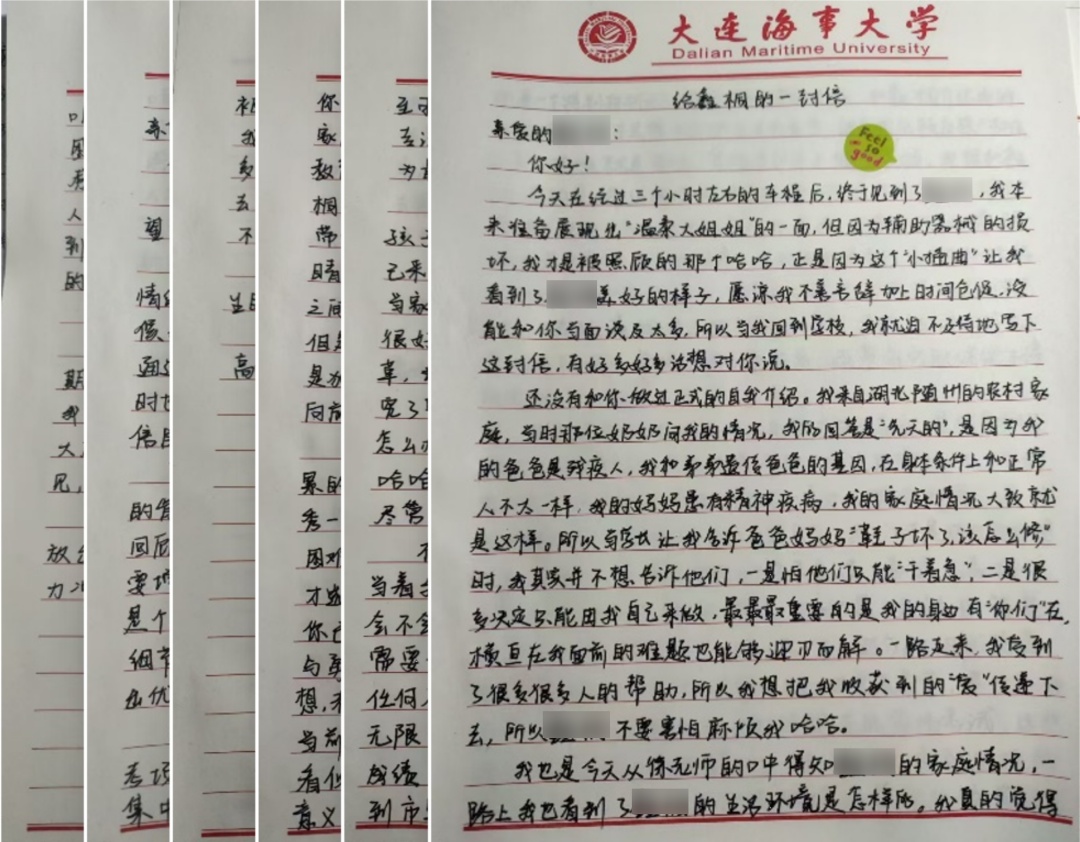 大连海事大学
Dalian Maritime University
给鑫桐的一封信
亲爱的 :
Feel
so
good
你好!
今天在经过三个小时左右的车程后,终于见到了 ,我本
来准备展现出“温柔大姐姐”的一面,但因为辅助器械的损
坏,我才是被照顾的那个哈哈,正是因为这个“小插曲”让我
看到了 美好的样子,愿谅我不善言辞加上时间仓促,没
能和你当面谈及太多,所以当我回到学校,我就迫不及待地写下
这封信,有好多好多话想对你说。
还没有和你做过正式的自我介绍。我来自湖北随州的农村家
庭,当时那位奶奶问我的情况,我的回答是“先天的”,是因为我
的爸爸是残疾人,我和弟弟遗传爸爸的基因,在身体条件上和正常
人不太一样,我的妈妈患有精神疾病,我的家庭情况大致就
是这样。所以当 让我告诉爸爸妈妈“鞋子坏了,该怎么修”
时,我真家并不想告诉他们,一是怕他们只能“干着急”,二是很
多决定只能由我自己来做,最最最重要的是我的身边有“你们”在,
横亘在我面前的难题也能够迎刃而解。一路走来,我受到
了很多很多人的帮助,所以我想把我收获到的“爱”传递下
去,所以 不要害怕麻烦我哈哈。
我也是今天从徐老师的口中得知 的家庭情况,一
路上我也看到了 的生活环境是怎样的。我真的觉得
人
到
的
期
我
大
见,
放
力
望
情
候
时
信
的
回
要
是个
细节
出优
考
集中
我
多
去
不
高
你
家
教
桐
常
晴
之间
但
是
向前
累的
秀一
困难
才
你
与
想,
当前
看似
意义
至
去
为
孩子
己来
当家
很好
章,
完了
怎么
哈哈
尽管
当看
会不会
需要
任何
无限
成绩
到市